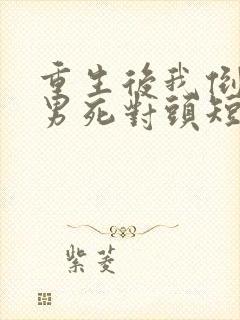 重生後我倒
男死對頭短
紫菱